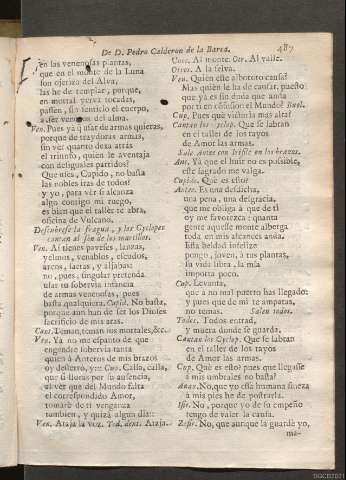 De D. Pedro Calderon de la Barca. 487
en las venenosas plantas,
que en el monte de la Luna
son ojeriza del Alva,
las he de templar, porque,
en mortal yerva tocadas,
passen, sin sentirlo el cuerpo,
a ser veneno del alma.
Ven. Pues ya q usar de armas quieras,
porque de traydoras armas,
sin ver quanto dexa atrás
el triunfo, quien le aventaja
con desiguales partidos?
Que usea, Cupido, no basta
las nobles iras de todos?
y yo, para vér si alcanza
algo contigo mi ruego,
es bien que el taller te abra,
oficina de Vulcano.
Descubrese la fragua, y los Cyclopes
cantan al son de los martillos.
Ven. Aì tienes paveses, lanzas,
yelmos, venablos, escudos,
arcos, saetas, y aljabas:
no, pues, singular pretenda
usar tu sobervia infancia
de armas venenosas, pues
basta qualquiera. Cupid. No basta,
porque aun han de ser los Dioses
sacrificio de mis aras.
Cant. Teman, teman los mortales, &c.
Ven. Ya no me espanto de que
engendre sobervia tanta
quien à Anteros de mis brazos
oy desterrò, y:: Cup. Calla, calla,
que si lloras por su ausencia,
al ver que del Mundo falta
el correspondido Amor,
tomarè de ti venganza
tambien, y quizà algun dia::
Ven. Ataja la voz. Tod. dent. Ataja.
Unos. Al monte. Otr. Al valle.
Otros. A la selva.
Ven. Quièn este alboroto causa?
Mas quièn le ha de causar, puesto
que ya es sin duda que anda
por ti en confusion el Mundo? Buel.
Cup. Pues què victoria mas alta?
Cantan los Cyclop. Que se labran
en el taller de los rayos
de Amor las armas.
Sale Anteo con Irifile en los brazos.
Ant. Ya que el huir no es possible,
este sagrado me valga.
Cupido. Què es esto?
Anteo. Es una desdicha,
una pena, una desgracia,
que me obliga à que de tì
oy me favorezca: quanta
gente aquelle monte alberga
toda en mis alcances anda.
Esta beldad infelize
pongo, joven, à tus plantas,
su vida libra, la mia
importa poco.
Cup. Levanta,
que à no mal puerto has llegado:
y pues que de mì te amparas,
no temas. Salen todos.
Todos. Todos entrad,
y muera donde se guarda.
Cantan los Cyclop. Que se labran
en el taller de los rayos
de Amor las armas.
Cup. Què es esto? pues que llegasse
à mis umbrales no basta?
Anax. No, que yo essa humana fineza
à mis pies he de postrarla.
Isir. No, porque yo de su empeño
tengo de valer la causa.
Zefir. No, que aunque la guarde yo,
ma-